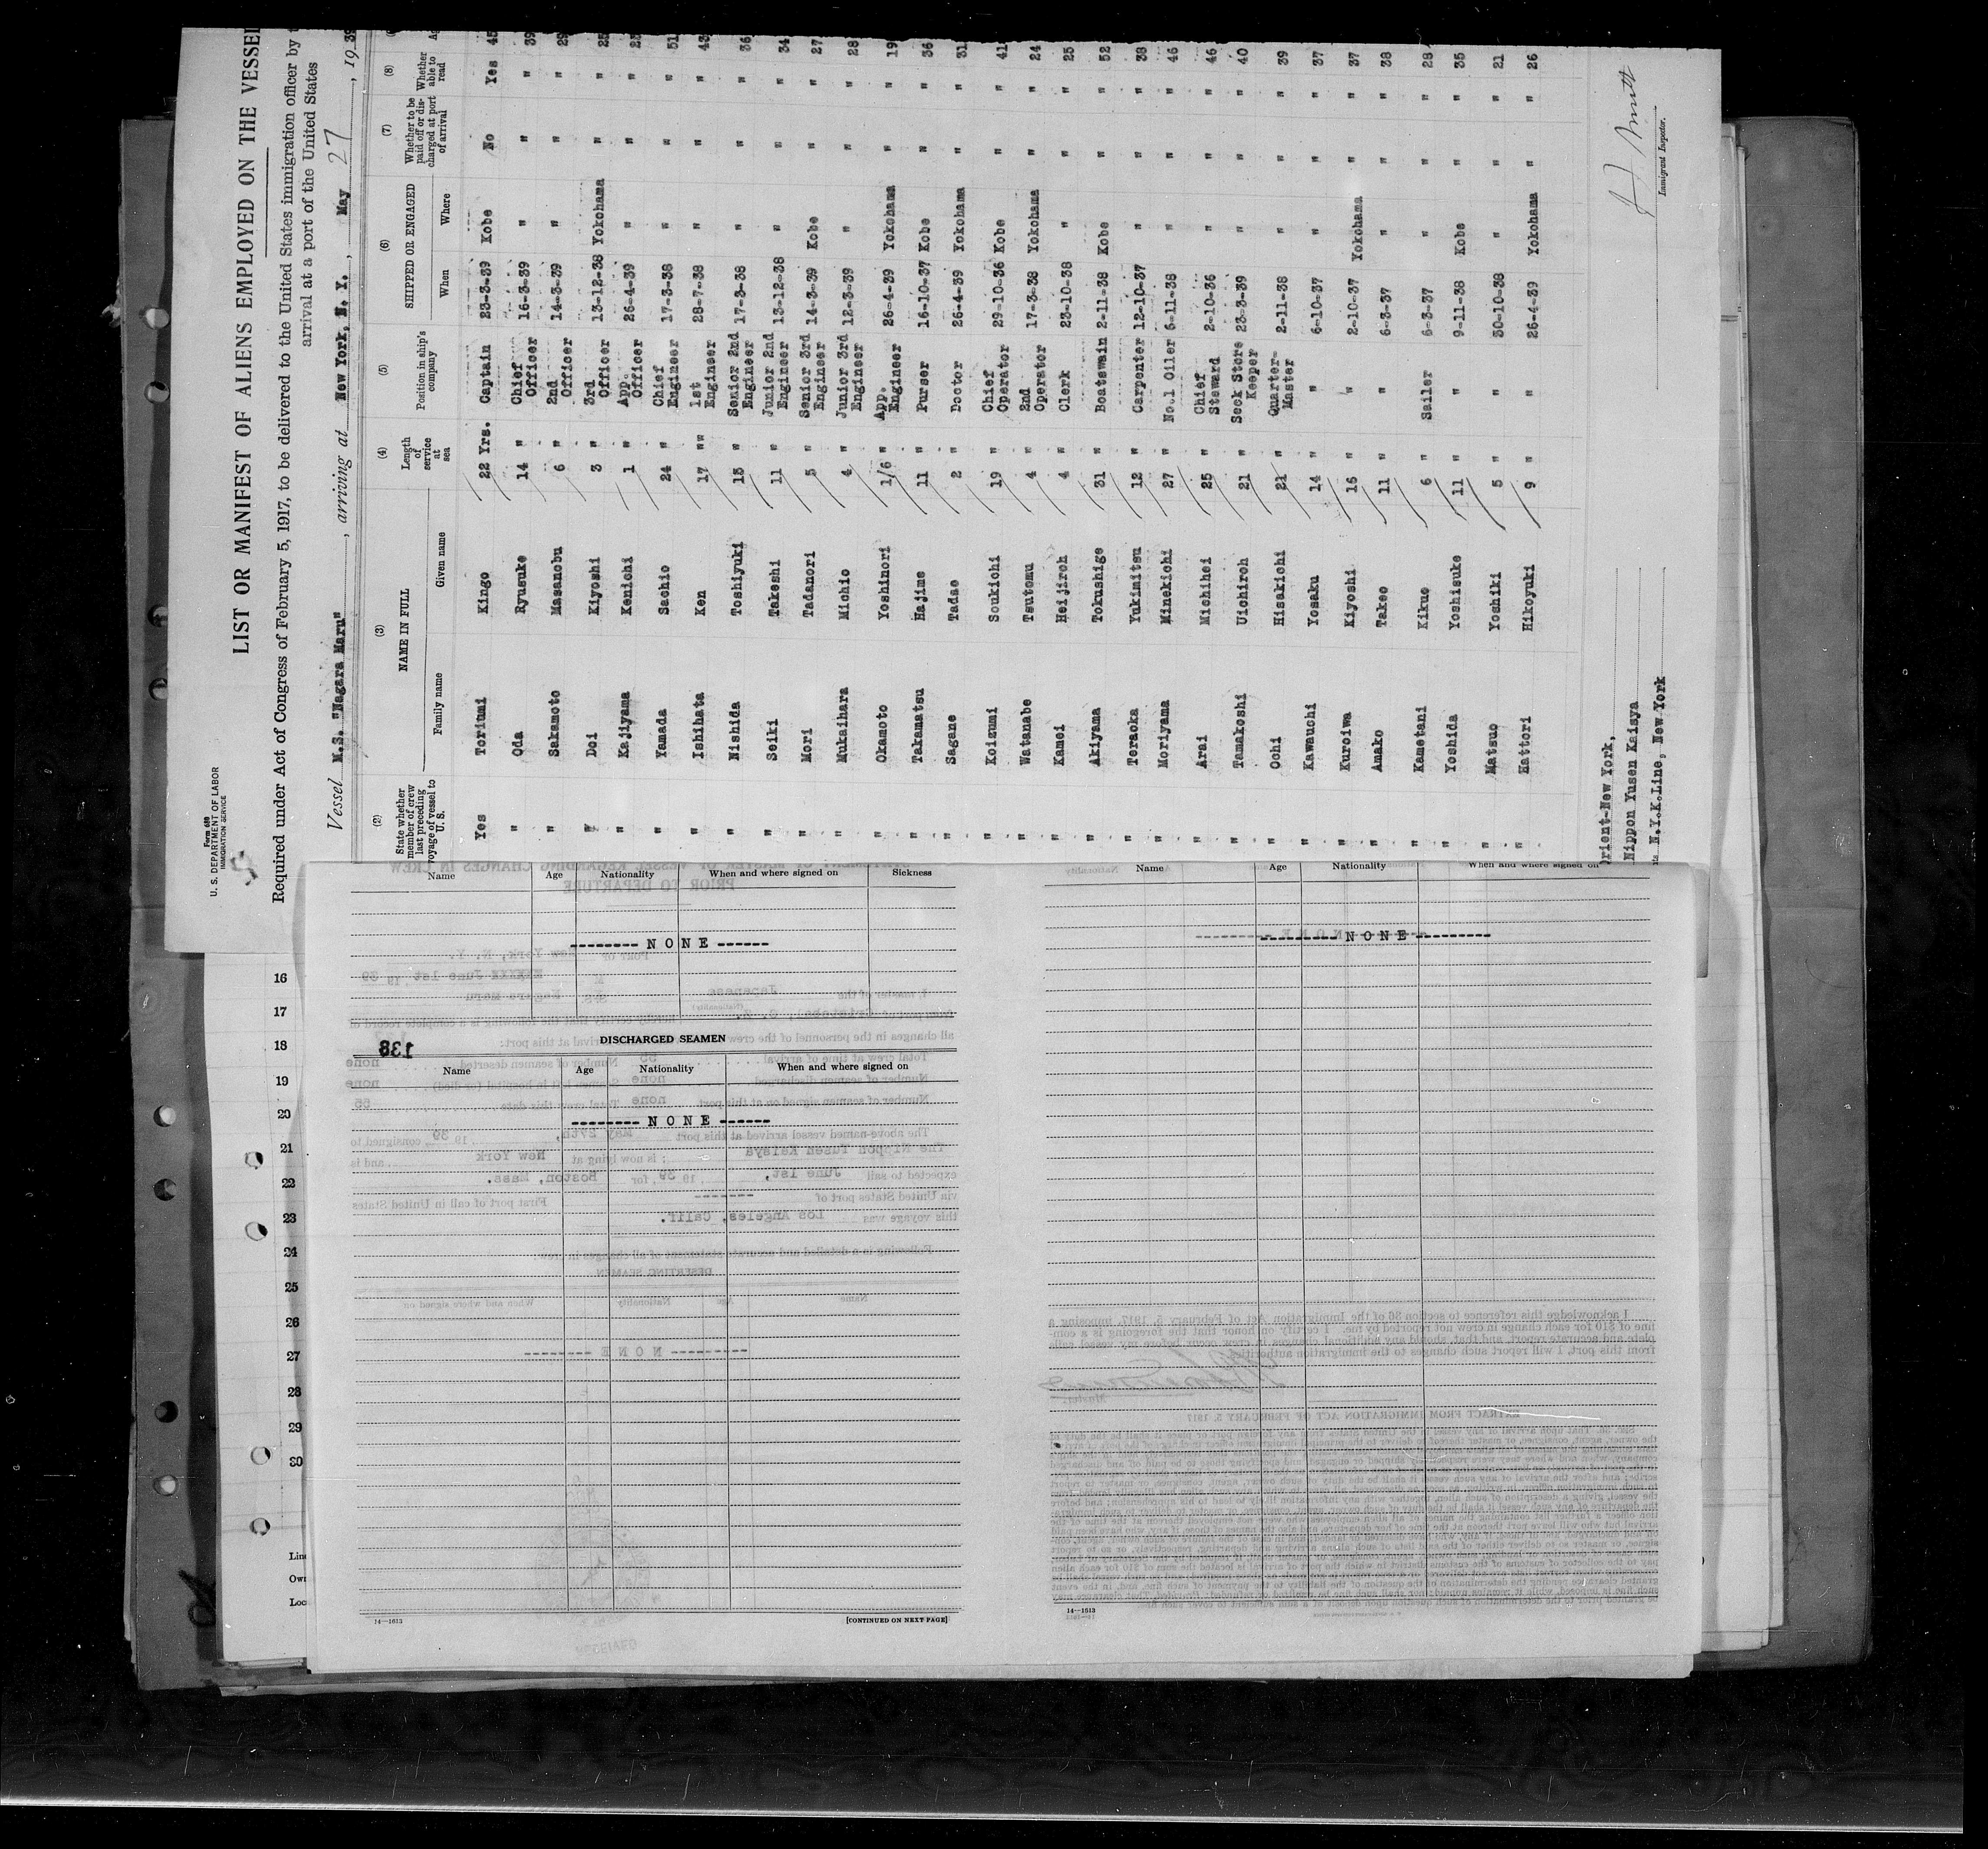 Form 689
U. S. DEPARTMENT OF LABOR
IMMIGRATION SERVICE
LIST OR MANIFEST OF ALIENS EMPLOYED ON THE VESSEL
Required under Act of Congress of February 5, 1917, to be delivered to the United States immigration officer by
arrival at a port of the United States
Vessel M.S. "Nagara Maru", arriving at New York, N. Y., May 27, 1939
(2) (3) (4) (5) (6) (7) (8)
State whether member of crew last preceding voyage of vessel to U. S. NAME IN FULL Family name Given name Length of service at sea Position in ship's company SHIPPED OR ENGAGED When Where Whether to be paid off or discharged at port of arrival Whether able to read
Yes Toriumi Kingo 22 Yrs. Captain 23-3-39 Kobe No Yes 45
" Oda Ryusuke 14 " Chief Officer 16-3-39 " " " 39
" Sakamoto Masanobu 6 " 2nd Officer 14-3-39 " " " 29
" Doi Kiyoshi 3 " 3rd Officer 13-12-38 Yokohama " " 25
" Kajiyama Kenichi 1 " App. Officer 26-4-39 " " " 23
" Yamada Sachio 24 " Chief Engineer 17-3-38 " " " 51
" Ishihata Ken 17 " 1st Engineer 28-7-38 " " " 43
" Nishida Toshiyuki 15 " Senior 2nd Engineer 17-3-38 " " " 36
" Seiki Takeshi 11 " Junior 2nd Engineer 13-12-38 " " " 34
" Mori Tadanori 5 " Senior 3rd Engineer 14-3-39 Kobe " " 27
" Mukaihara Michio 4 " Junior 3rd Engineer 12-3-39 " " " 28
" Okamoto Yoshinori 1/6 " App. Engineer 26-4-39 Yokohama " " 19
" Takamatsu Hajime 11 " Purser 16-10-37 Kobe " " 36
" Sagane Tadae 2 " Doctor 26-4-39 Yokohama " " 31
" Koizumi Soukichi 19 " Chief Operator 29-10-36 Kobe " " 41
" Watanabe Tsutomu 4 " 2nd Operator 17-3-38 Yokohama " " 24
" Kamei Heijiroh 4 " Clerk 23-10-38 " " " 25
" Akiyama Tokushige 31 " Boatswain 2-11-38 Kobe " " 52
" Teraoka Yukimitsu 12 " Carpenter 12-10-37 " " " 38
" Moriyama Minekichi 27 " No.1 Oiler 6-11-38 " " " 46
" Arai Michihei 25 " Chief Steward 2-10-36 " " " 46
" Tamakoshi Uichiroh 21 " Seck Store Keeper 23-3-39 " " " 40
" Ochi Hisakichi 21 " Quarter-Master 2-11-38 " " " 39
" Kawauchi Yosaku 14 " " 6-10-37 " " " 37
" Kuroiwa Kiyoshi 16 " " 2-10-37 Yokohama " " 37
" Amako Takeo 11 " " 6-3-37 " " " 38
" Kametani Kikuo 6 " Sailer 6-3-37 " " " 28
" Yoshida Yoshisuke 11 " " 9-11-38 Kobe " " 35
" Matsuo Yoshiki 5 " " 30-10-38 " " " 21
" Hattori Hikoyuki 9 " " 26-4-39 Yokohama " " 26
Orient-New York,
Nippon Yusen Kaisya
N.Y.K.Line, New York
Immigrant Inspector.
Name Age Nationality When and where signed on Sickness
-------- N O N E ------
138
DISCHARGED SEAMEN
Name Age Nationality When and where signed on
-------- N O N E ------
14—1613 [CONTINUED ON NEXT PAGE]
Name Age Nationality When and where signed on
--------- N O N E ---------
14—1613
16
17
18
19
20
21
22
23
24
25
26
27
28
29
30
Line
Own
Loc